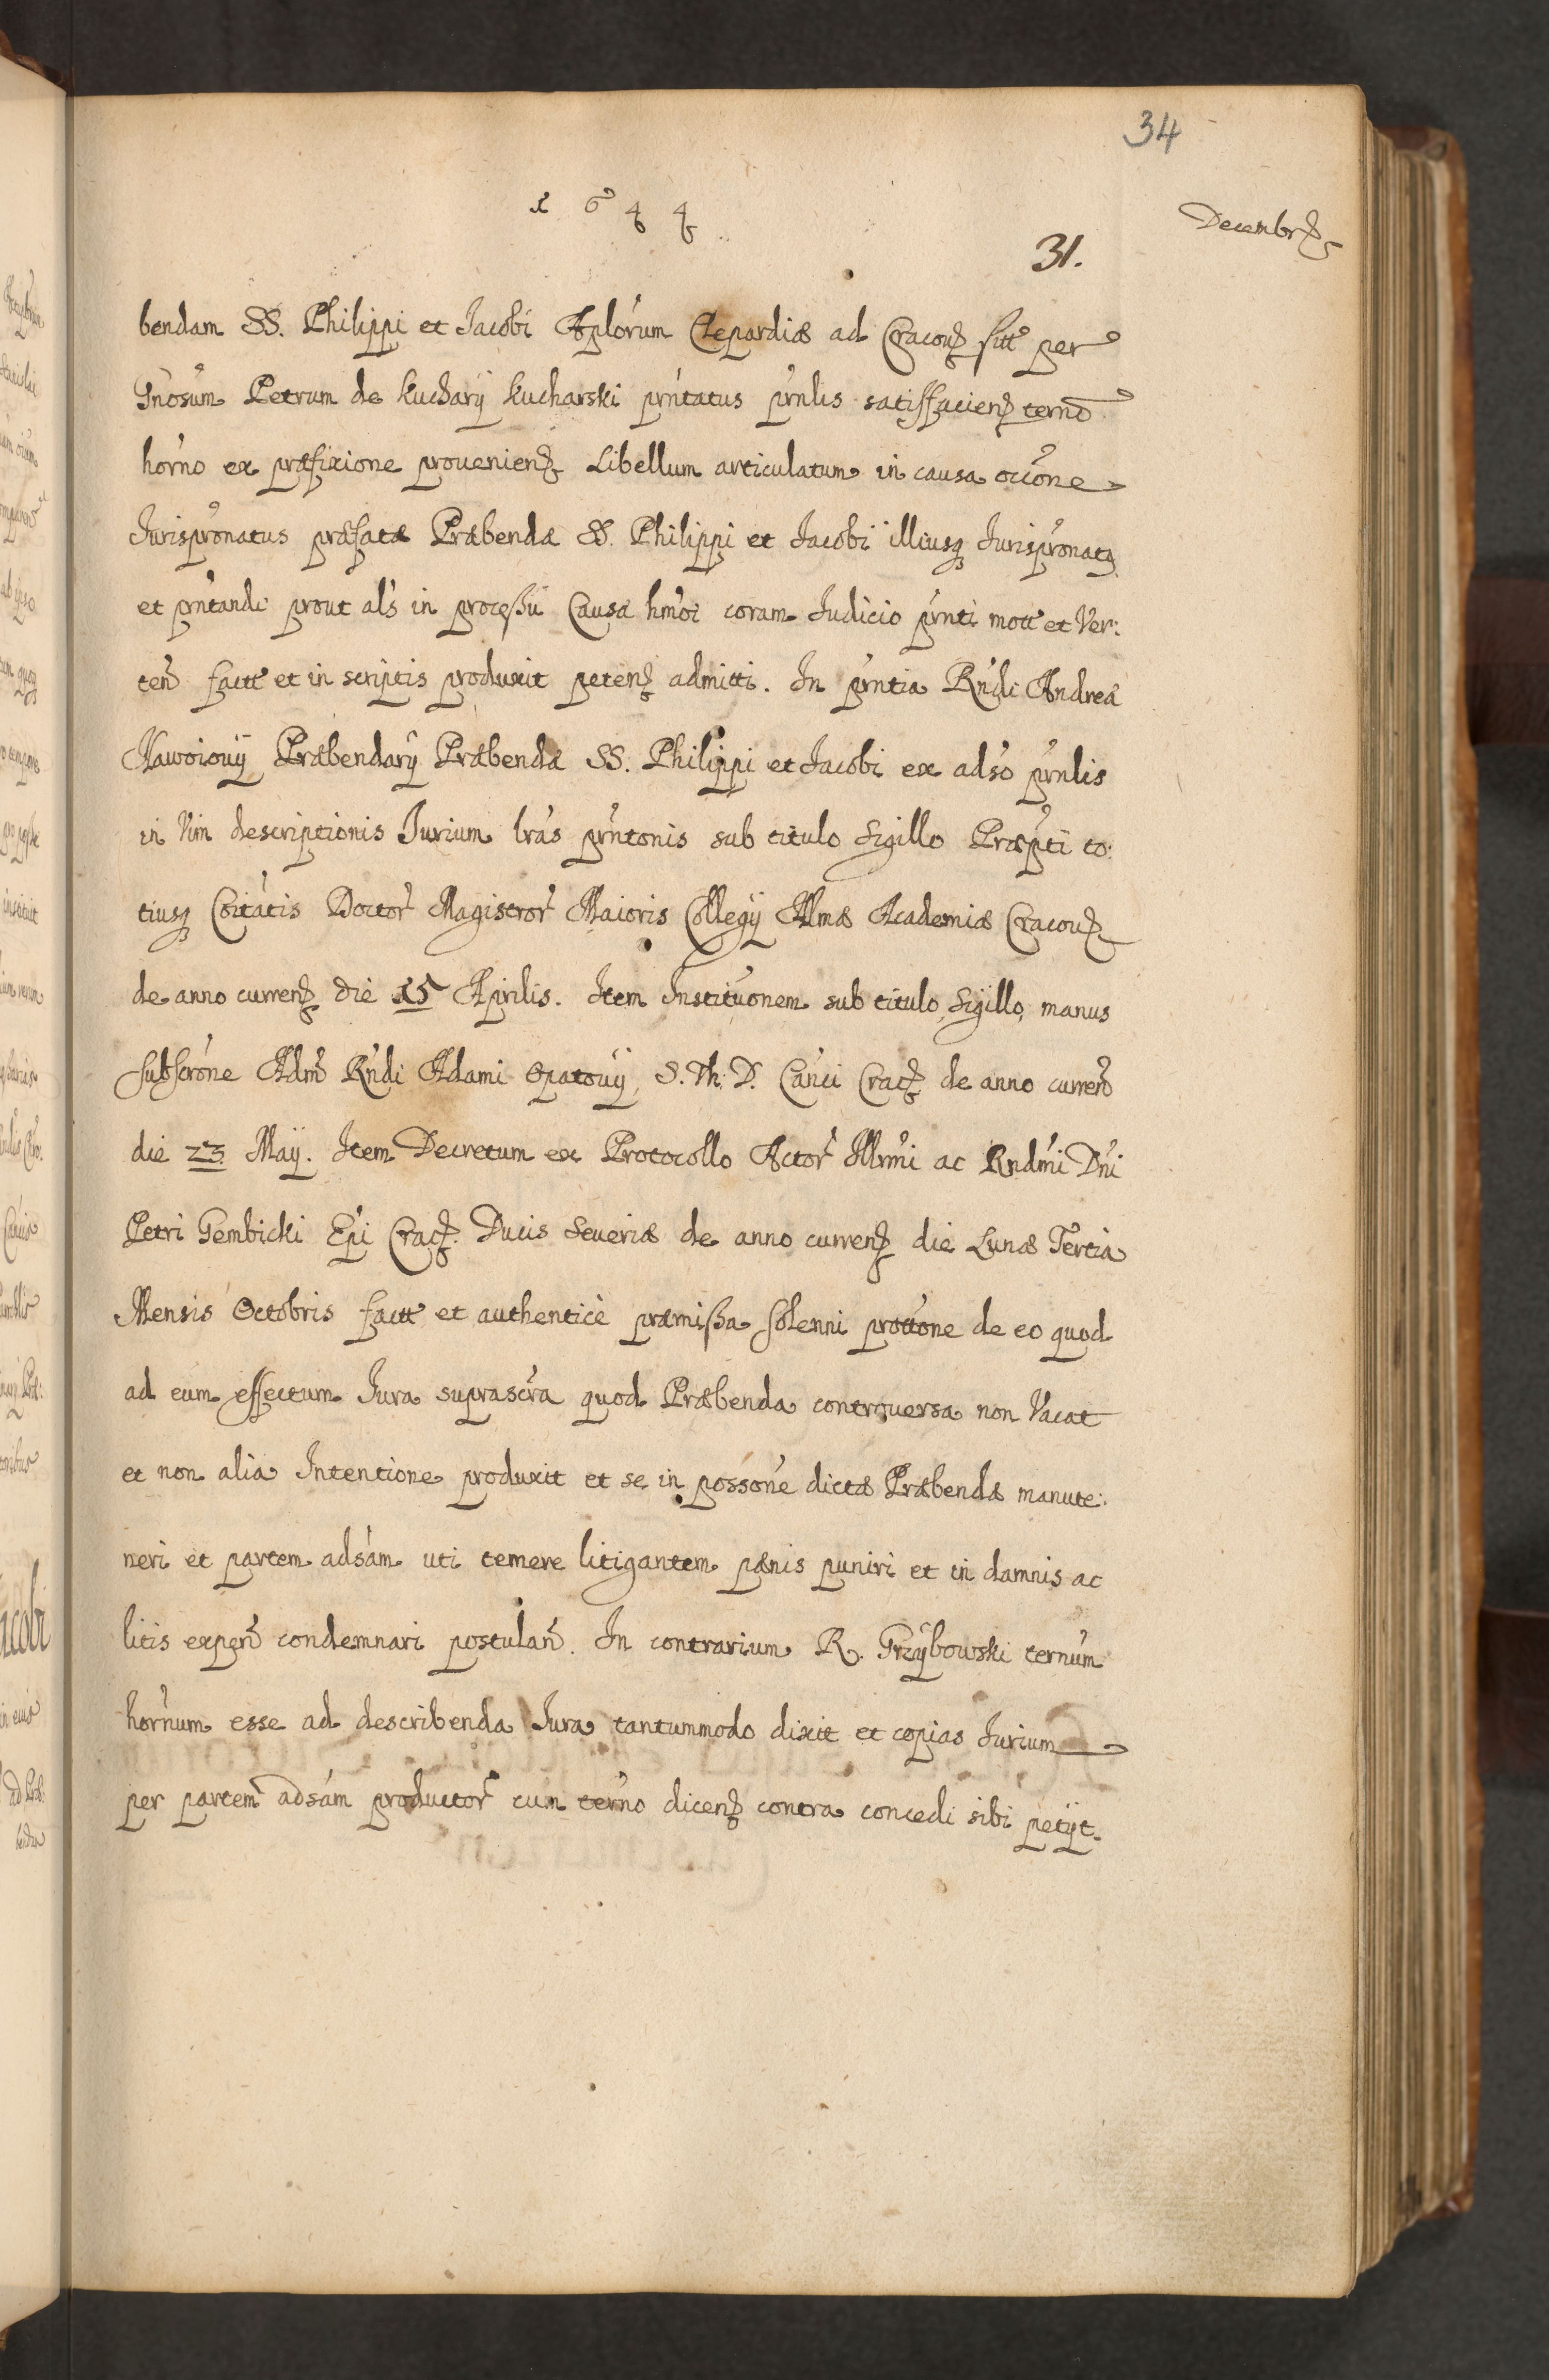 34
1644
Decembr
31.
bendam SS. Philippi et Jacobi Aplorum Clepardiæ ad Cracou sitt per
Gnosum Petrum de Kuchary Kucharski prntatus prnlis satisffacien termo
horno ex præfixione prouenien Libellum articulatum in causa occone
Jurispronatus præfatæ Præbendæ SS. Philippi et Jacobi illiusq Jurispronatq
et prntandi prout als in processu Causæ hmoi coram Judicio prnti mott et Ver:
ten factt et in scriptis produxit peten admitti. In prntia Rndi Andreæ
Nawoiouij Præbendarij Præbendæ SS. Philippi et Jacobi ex adso prnlis
in Vim descriptionis Jurium lras prntonis sub titulo Sigillo Præpti to:
tiusq Coitatis Doctor Magistror Maioris Collegij Almæ Academiæ Cracou
de anno curren die 15 Aprilis. Item Institutionem sub titulo, Sigillo, manus
subscrone Adm Rndi Adami Opatouij S. Th. D. Canci Crac de anno curren
die 23 Maij. Item Decretum ex Protocollo Actor Illrmi ac Rndmi Dni
Petri Gembicki Epi Crac. Ducis Seueriæ de anno curren die Lunæ Tertia
Mensis Octobris factt et authenticè præmissa solenni prottone de eo quod
ad eum effectum Jura suprascra quod Præbenda controuersa non Vacat
et non alia Intentione produxit et se in possone dictæ Præbendæ manute:
neri et partem adsam uti temere litigantem pænis puniri et in damnis ac
litis expen condemnari postulan. In contrarium R. Grzybowski ternum
hornum esse ad describenda Jura tantummodo dixit et copias Jurium
per partem adsam productor cum terno dicen contra concedi sibi petijt.